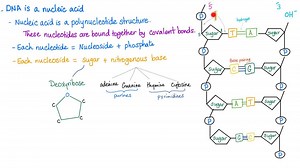 - DNA is a nucleic acid
- Nucleic acid is a polynucleotide structure.
These nucleotides are bound together by covalent bonds.
- Each nucleotide = Nucleoside + phosphate
- Each nucleoside = sugar + nitrogenous base
Deoxyribose
adenine Guanine thymine cytosine
purines pyrimidines
O
C C
C C
5 3
OH
P
sugar T A sugar
P
sugar C G sugar
P
sugar A T sugar
P
sugar G C sugar